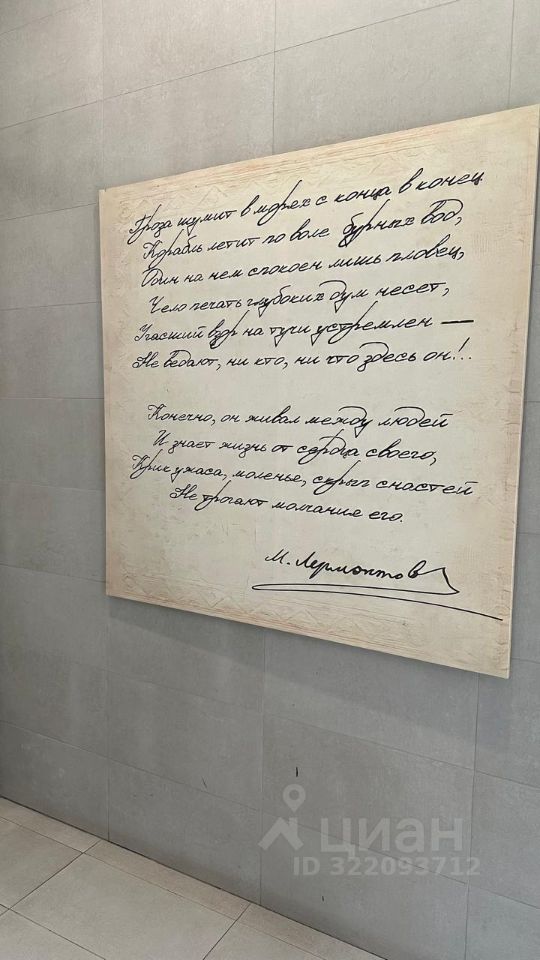 Гроза шумит в морях с конца в конец
Корабль летит по воле бурных вод,
Один на нем спокоен лишь пловец,
Чело печать глубоких дум несет,
Угасший взор на тучи устремлен —
Не ведают, ни кто, ни что здесь он!..
Конечно, он живал между людей
И знает жизнь от сердца своего,
Крик ужаса, моленье, скрып снастей
Не трогают молчания его.
М. Лермонтов
циан
ID 322093712